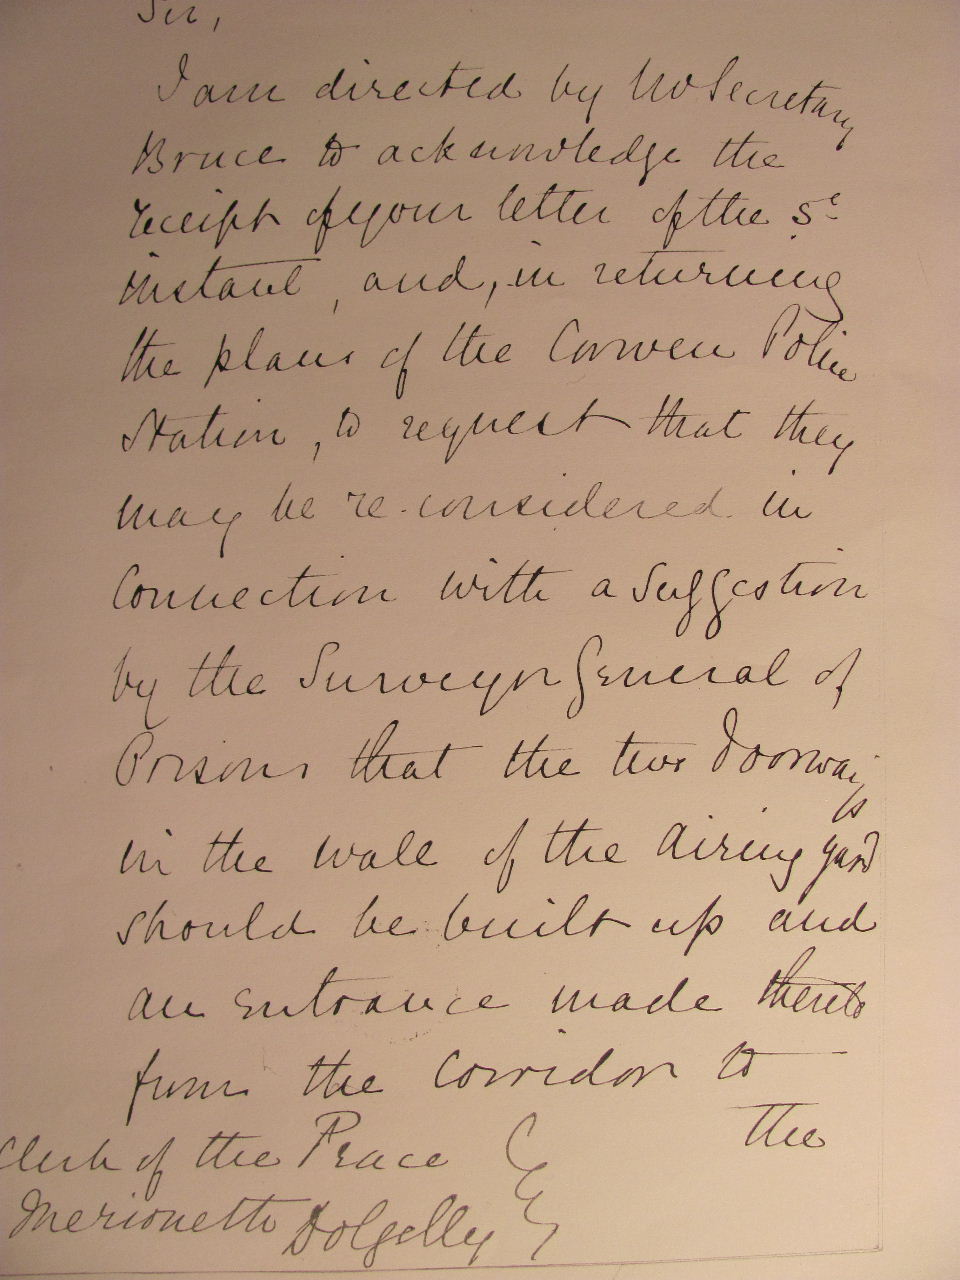 Sir,
I am directed by Mr Secretary
Bruce to acknowledge the
receipt of your letter of the 5th
instant, and, in returning
the plans of the Corwen Police
Station, to request that they
may be re-considered in
Connection with a Suggestion
by the Surveyor General of
Prisons that the two doorways
in the wall of the airing yard
should be built up and
an entrance made thereto
from the Corridor to
the
Clerk of the Peace
Merioneth Dolgelly